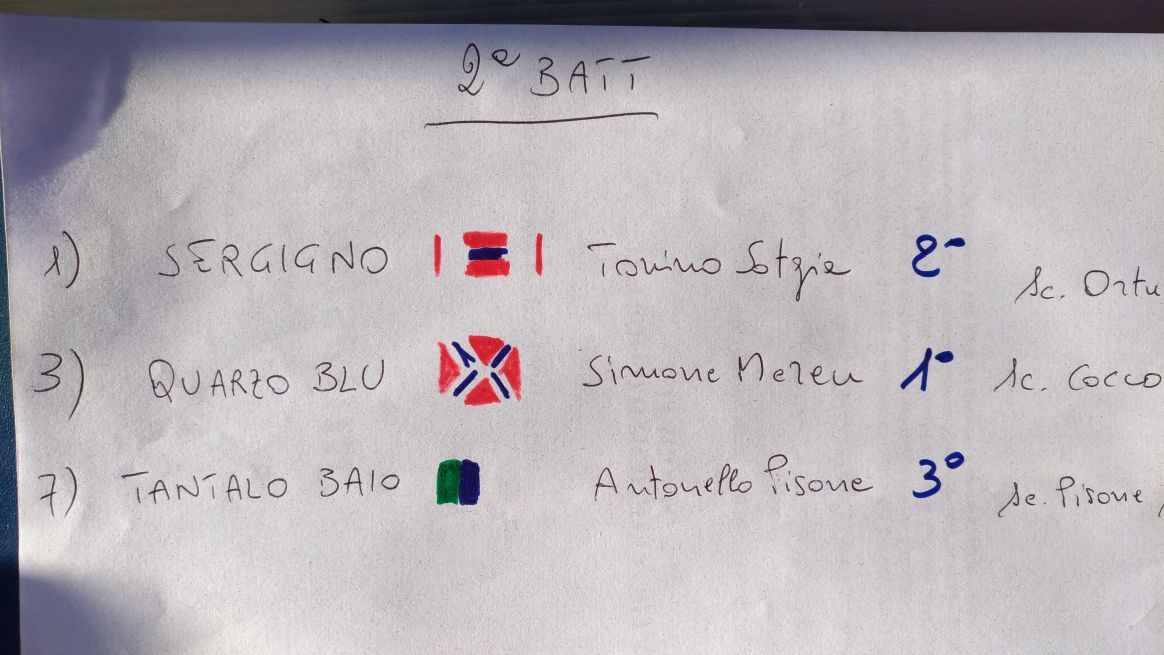 2ª BATT
1) SERGIGNO Tonino Sotgia 2° Sc. Ortu
3) QUARZO BLU Simone Mereu 1° Sc. Cocco
7) TANTALO BAIO Antonello Pisone 3° Sc. Pisone